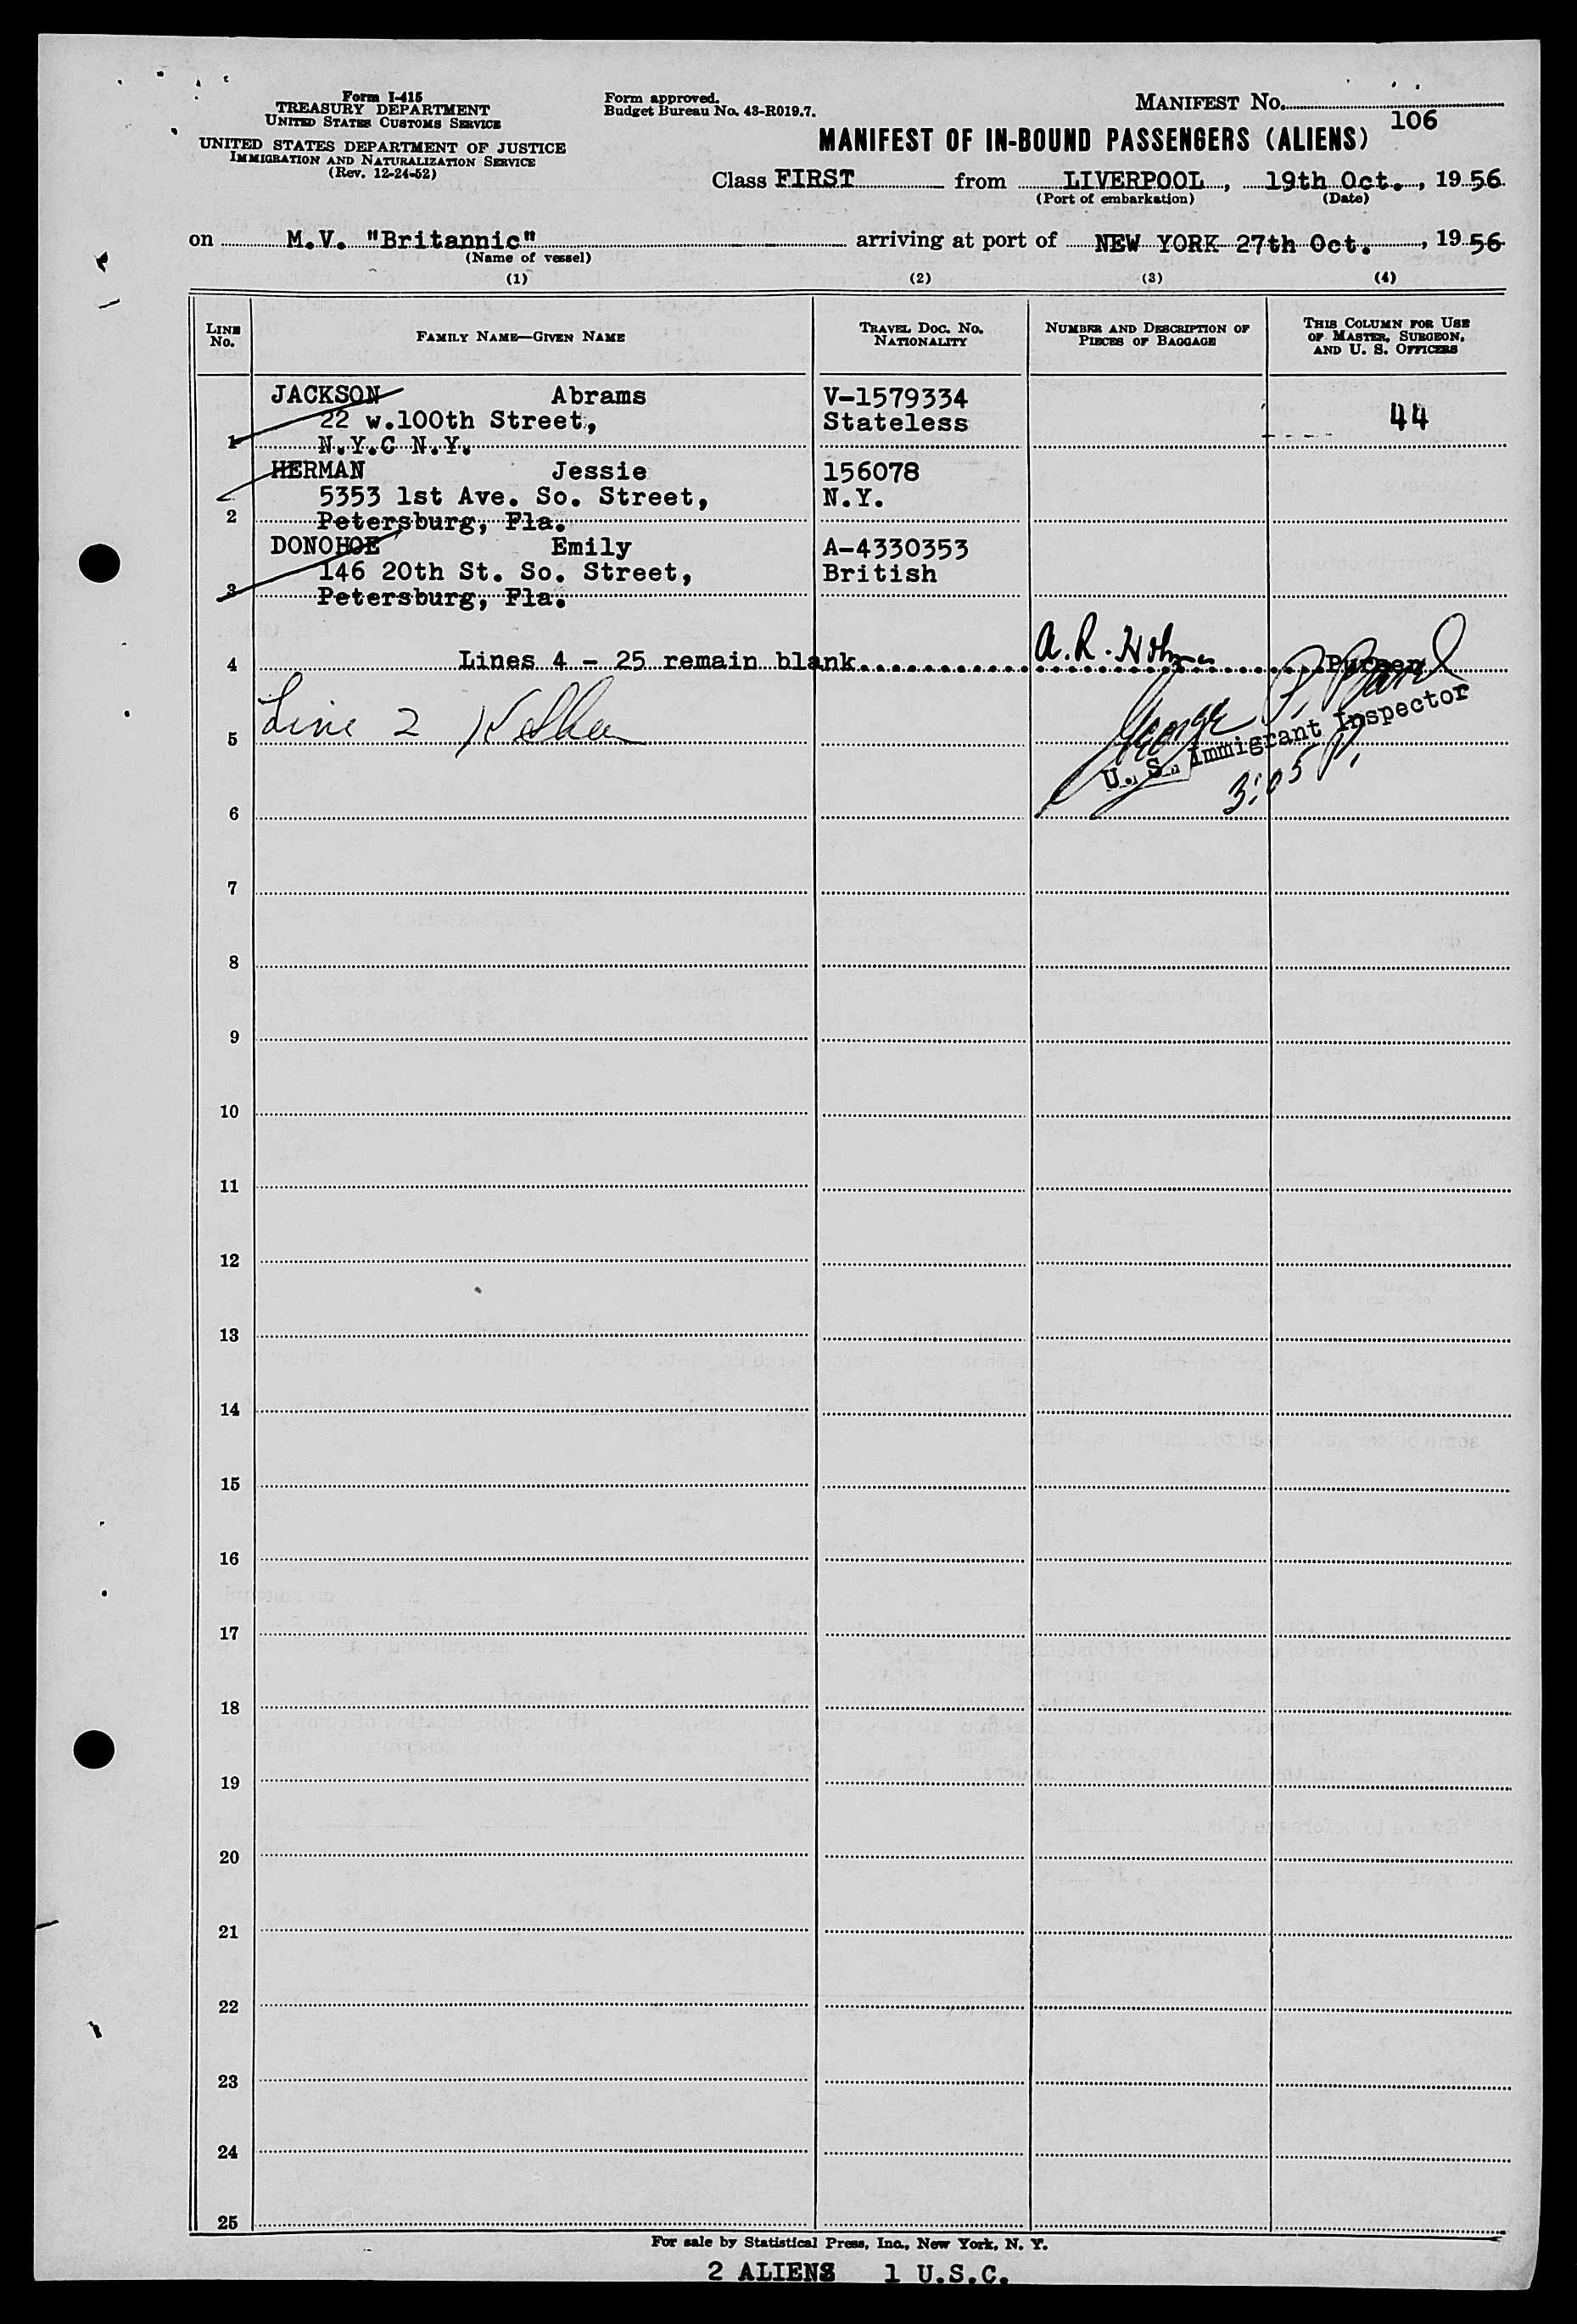 Form I-415
TREASURY DEPARTMENT
UNITED STATES CUSTOMS SERVICE
UNITED STATES DEPARTMENT OF JUSTICE
IMMIGRATION AND NATURALIZATION SERVICE
(Rev. 12-24-52)
Form approved.
Budget Bureau No. 43-R019.7.
MANIFEST NO.
106
MANIFEST OF IN-BOUND PASSENGERS (ALIENS)
Class FIRST from LIVERPOOL, 19th Oct., 1956
(Port of embarkation) (Date)
on M.V. "Britannic" arriving at port of NEW YORK 27th Oct., 1956
(Name of vessel)
(1) (2) (3) (4)
LINE NO. FAMILY NAME—GIVEN NAME TRAVEL DOC. NO. NATIONALITY NUMBER AND DESCRIPTION OF PIECES OF BAGGAGE THIS COLUMN FOR USE OF MASTER, SURGEON, AND U. S. OFFICERS
JACKSON Abrams V-1579334
22 w.100th Street, Stateless 44
1 N.Y.C N.Y.
HERMAN Jessie 156078
5353 1st Ave. So. Street, N.Y.
2 Petersburg, Fla.
DONOHOE Emily A-4330353
146 20th St. So. Street, British
3 Petersburg, Fla.
4 Lines 4 - 25 remain blank A. R. Purser
5 Line 2 George P.
U. S. Immigrant Inspector
3:05 P.
6
7
8
9
10
11
12
13
14
15
16
17
18
19
20
21
22
23
24
25
For sale by Statistical Press, Inc., New York, N. Y.
2 ALIENS 1 U.S.C.